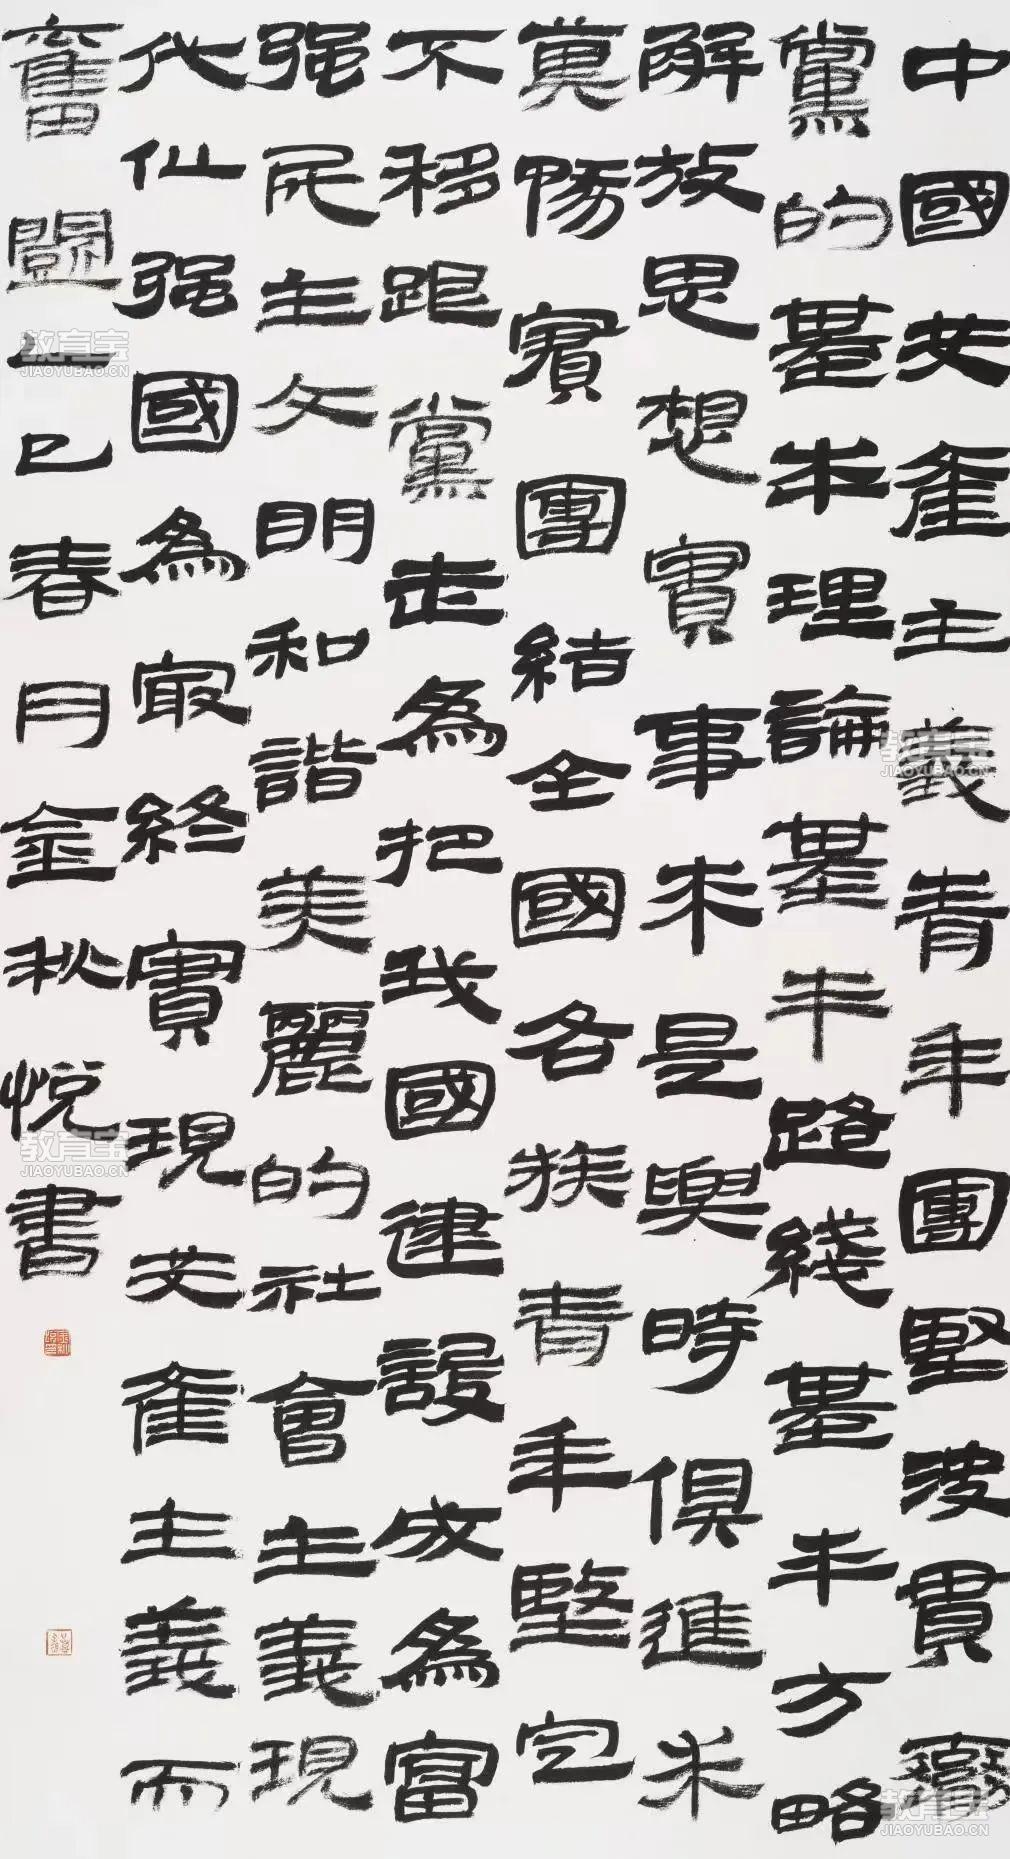 中國共產主義青年團堅決貫徹
黨的基本理論基本路綫基本方略
解放思想實事求是與時俱進求
真務實團結全國各族青年堅定
不移跟黨走為把我國建設成為富
强民主文明和諧美麗的社會主義現
代化强國為最終實現共產主義而
奮鬪乙巳春月金秋悦書
教育宝
JIAOYUBAO.CN
教育宝
JIAOYUBAO.CN
教育宝
JIAOYUBAO.CN
教育宝
JIAOYUBAO.CN